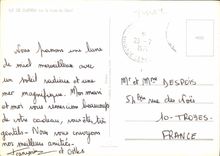 Nous passons une lune
de miel merveilleuse avec
un soleil radieux et une mer
magnifique. Mon mari
et moi vous remercions beaucoup
de votre cadeau, vous êtes très
gentils. Nous vous envoyons
nos meilleures amitiés.
et Gilles
Mr et Mme DESPOIS
rue des
10 - TROYES
FRANCE